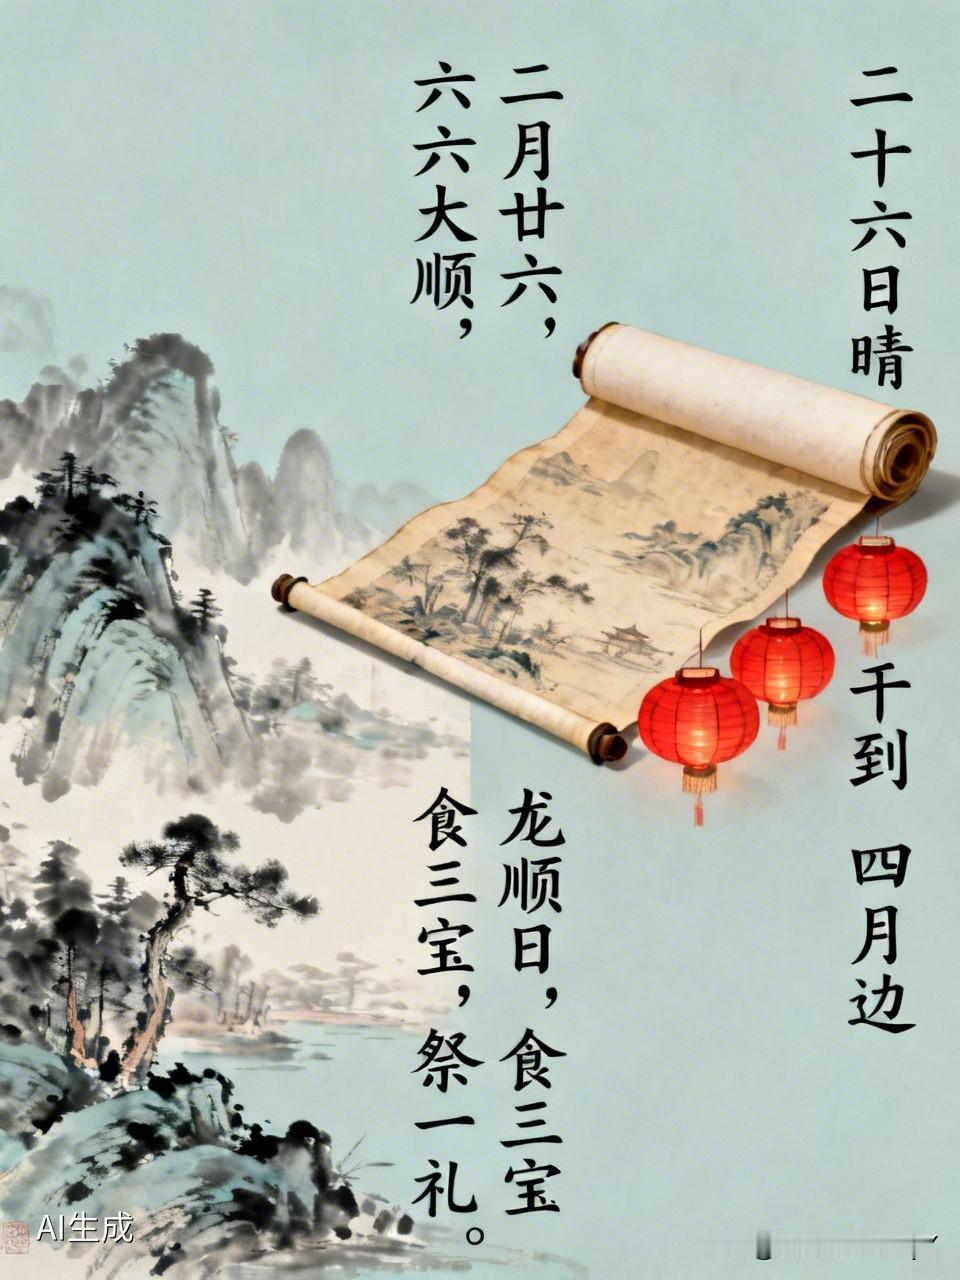 二十六日晴
干到
四月边
二月廿六，
六六大顺，
龙顺日，食三宝
食三宝，祭一礼。
AI生成